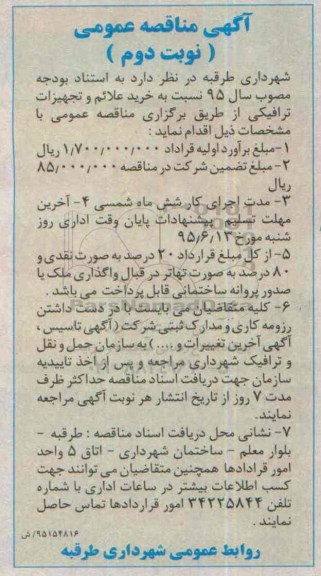 آگهی مناقصه عمومی
( نوبت دوم )
شهرداری طرقبه در نظر دارد به استناد بودجه
مصوب سال ۹۵ نسبت به خرید علائم و تجهیزات
ترافیکی از طریق برگزاری مناقصه عمومی با
مشخصات ذیل اقدام نماید :
۱-مبلغ برآورد اولیه قراداد ۱/۷۰۰/۰۰۰/۰۰۰ ریال
۲-مبلغ تضمین شرکت در مناقصه ۸۵/۰۰۰/۰۰۰
ریال
۳- مدت اجرای کار شش ماه شمسی ۴- آخرین
مهلت تسلیم پیشنهادات پایان وقت اداری روز
شنبه مورخ ۹۵/۶/۱۳
۵- از کل مبلغ قرارداد ۲۰ درصد به صورت نقدی و
۸۰ درصد به صورت تهاتر در قبال واگذاری ملک یا
صدور پروانه ساختمانی قابل پرداخت می باشد .
۶- کلیه متقاضیان می بایست با در دست داشتن
رزومه کاری و مدارک ثبتی شرکت ( آگهی تاسیس ،
آگهی آخرین تغییرات و .... ) به سازمان حمل و نقل
و ترافیک شهرداری مراجعه و پس از اخذ تاییدیه
سازمان جهت دریافت اسناد مناقصه حداکثر ظرف
مدت ۷ روز از تاریخ انتشار هر نوبت آگهی مراجعه
نمایند.
۷- نشانی محل دریافت اسناد مناقصه : طرقبه -
بلوار معلم - ساختمان شهرداری - اتاق ۵ واحد
امور قراردادها همچنین متقاضیان می توانند جهت
کسب اطلاعات بیشتر در ساعات اداری با شماره
تلفن ۳۴۲۲۵۸۴۴ امور قراردادها تماس حاصل
نمایند .
۹۵۱۵۴۸۱۶/ش
روابط عمومی شهرداری طرقبه